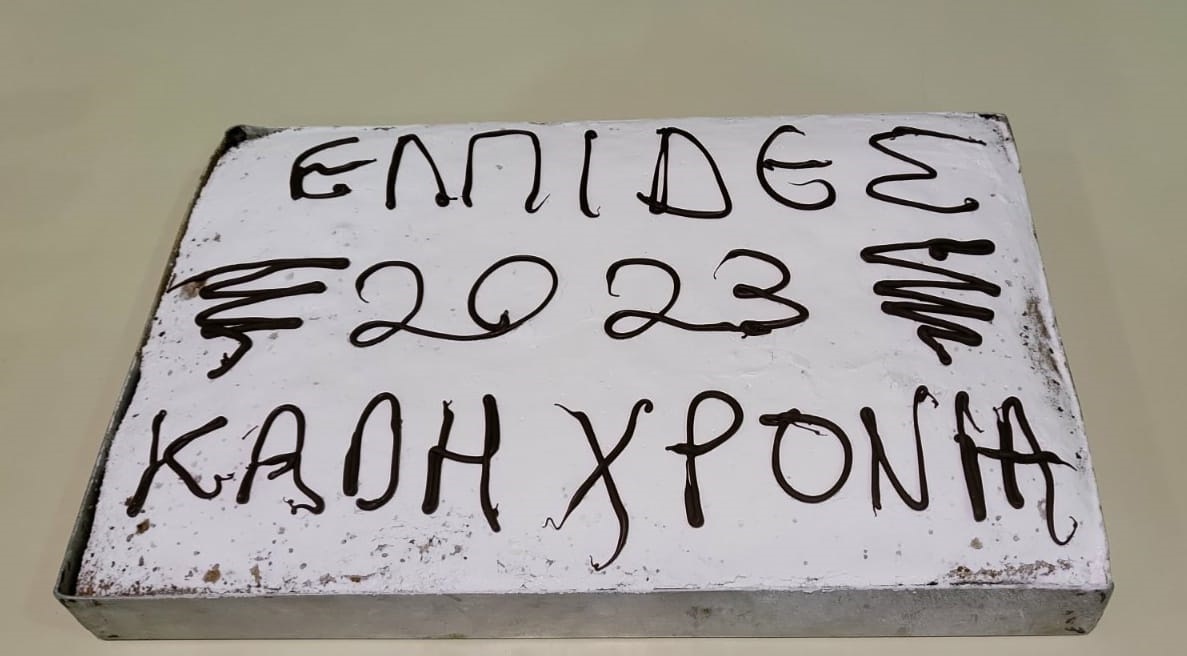 ΕΛΠΙΔΕΣ
2023
ΚΑΛΗ ΧΡΟΝΙΑ